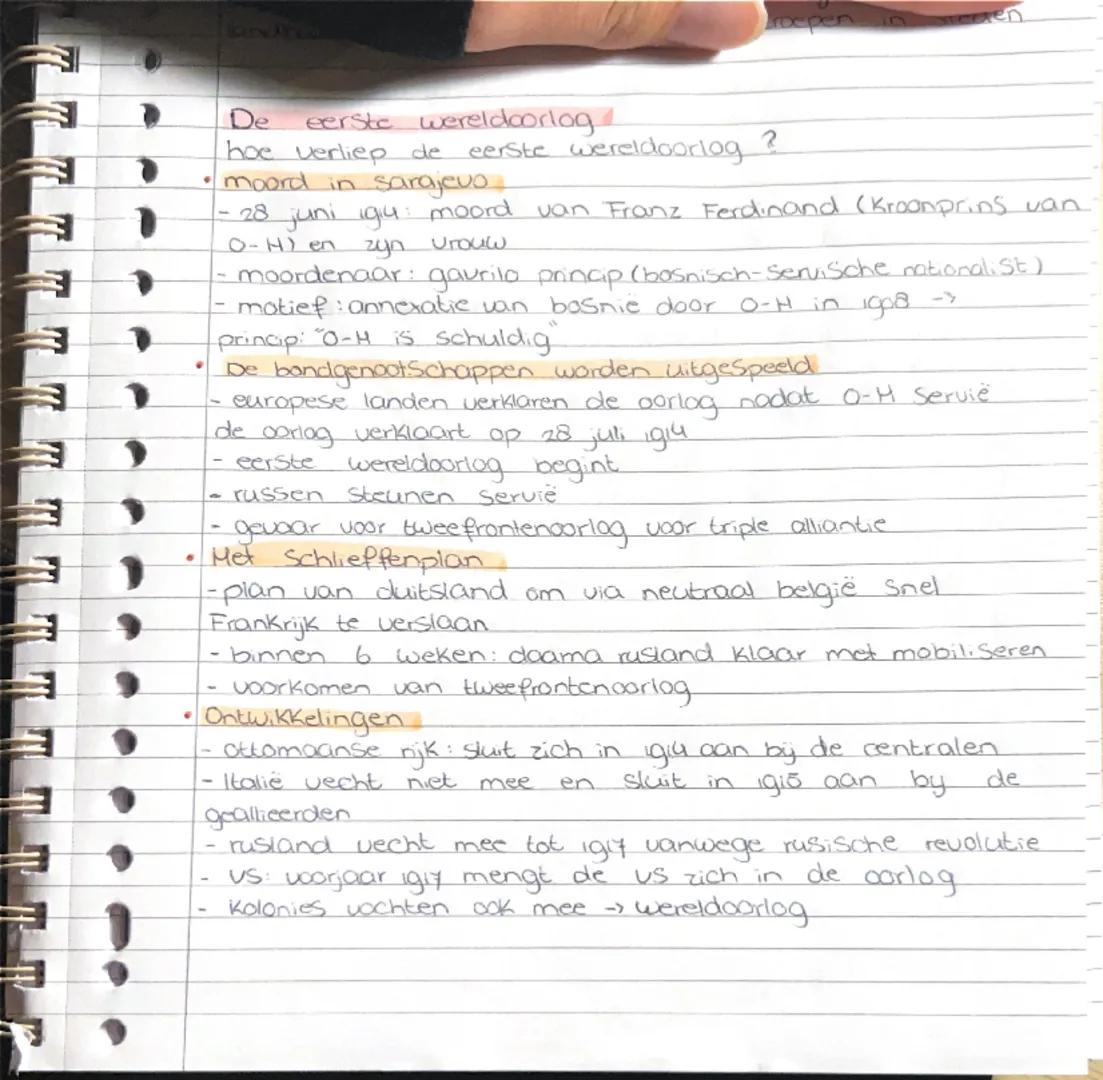 roepen in steden
De eerste wereldoorlog
hoe verliep de eerste wereldoorlog ?
• moord in sarajevo
- 28 juni 1914: moord van Franz Ferdinand (Kroonprins van
O-H) en zijn vrouw
- moordenaar: gavrilo princip (bosnisch-servische nationalist)
- motief: annexatie van bosnië door O-H in 1908 ->
princip: "O-H is schuldig"
• De bondgenootschappen worden uitgespeeld
- europese landen verklaren de oorlog nadat O-H Servië
de oorlog verklaart op 28 juli 1914
- eerste wereldoorlog begint
- russen steunen servië
- gevaar voor tweefrontenoorlog voor triple alliantie
• Het Schlieffenplan
- plan van duitsland om via neutraal belgië snel
Frankrijk te verslaan
- binnen 6 weken: daarna rusland klaar met mobiliseren
- voorkomen van tweefrontenoorlog
• Ontwikkelingen
- ottomaanse rijk: sluit zich in 1914 aan bij de centralen
- Italië vecht niet mee en sluit in 1915 aan by de
geallieerden
- rusland vecht mee tot 1917 vanwege rusische revolutie
- VS: voorjaar 1917 mengt de VS zich in de oorlog
- Kolonies vochten ook mee -> wereldoorlog